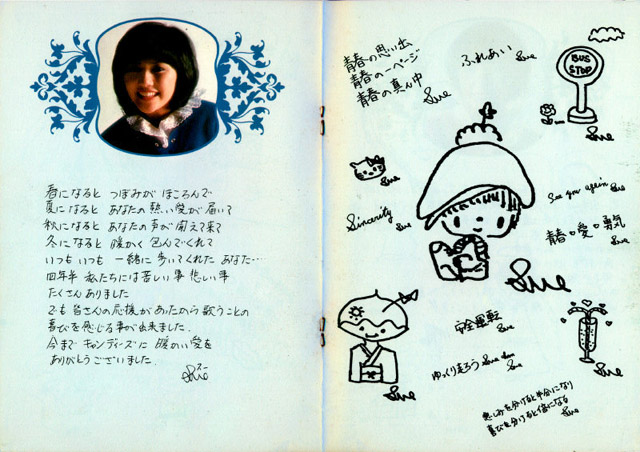 春になると つぼみが ほころんで
夏になると あなたの熱い愛が届いて
秋になると あなたの声が聞えて来て
冬になると 暖かく 包んでくれて
いつも いつも 一緒に 歩いてくれた あなた…
四年半 私たちには苦しい事 悲しい事
たくさん ありました
でも 皆さんの応援が あったから 歌うことの
喜びを感じる事が出来ました.
今まで キャンディーズに 暖かい愛を
ありがとうございました.
スー
Sue
青春の思い出
青春の一ページ
青春の真ん中
Sue
ふれあい
Sue
BUS
STOP
Sue
Sue
Sincerity
Sue
See you again
Sue
青春○愛○勇気
Sue
Sue
安全運転
Sue
ゆっくり走ろう Sue Sue
Sue
Sue
Sue
悲しみを分けると半分になり
喜びを分けると倍になる
Sue